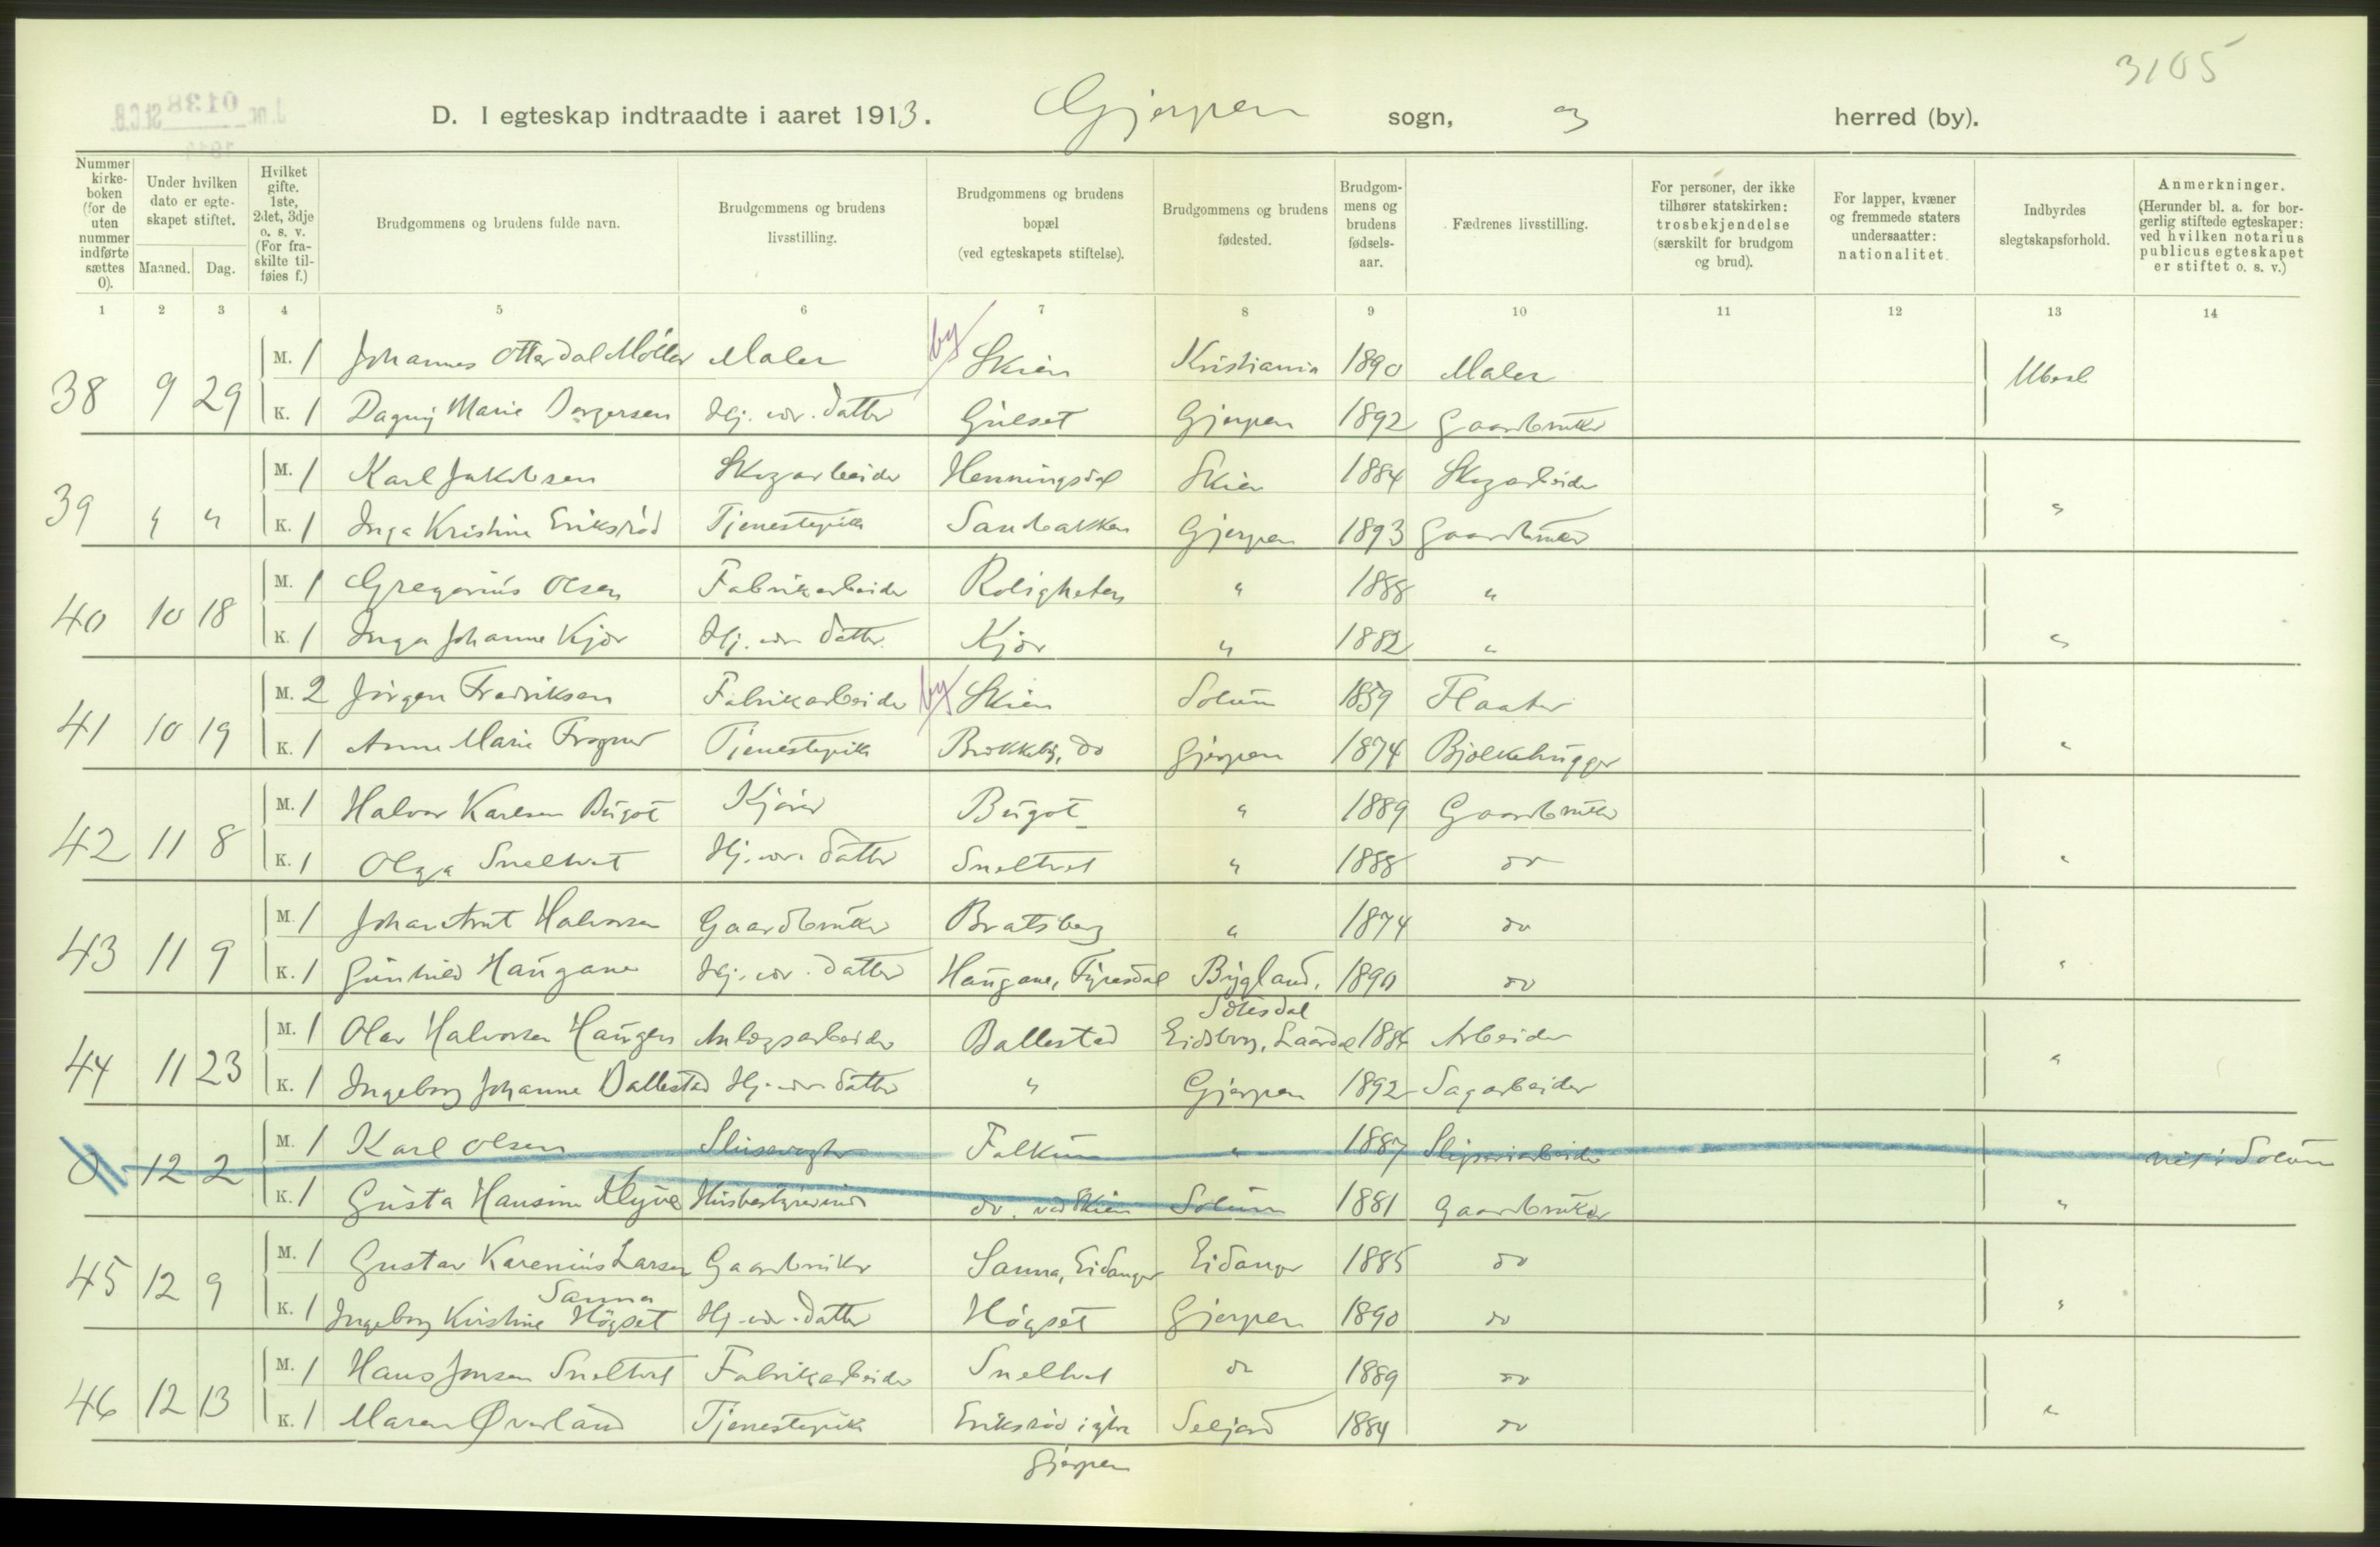 3105
D. I egteskap indtraadte i aaret 1913. Gjerpen sogn, herred (by).
Nummer i kirkeboken (for de uten nummer indførte sættes 0).
Under hvilken dato er egteskapet stiftet.
Maaned. Dag.
Hvilket gifte. 1ste, 2det, 3dje o. s. v. (For fraskilte tilføies f.)
Brudgommens og brudens fulde navn.
Brudgommens og brudens livsstilling.
Brudgommens og brudens bopæl (ved egteskapets stiftelse).
Brudgommens og brudens fødested.
Brudgommens og brudens fødselsaar.
Fædrenes livsstilling.
For personer, der ikke tilhører statskirken: trosbekjendelse (særskilt for brudgom og brud).
For lapper, kvæner og fremmede staters undersaatter: nationalitet.
Indbyrdes slegtskapsforhold.
Anmerkninger. (Herunder bl. a. for borgerlig stiftede egteskaper: ved hvilken notarius publicus egteskapet er stiftet o. s. v.)
1 2 3 4 5 6 7 8 9 10 11 12 13 14
38 9 29 M. 1 Johannes Otterdal Möller Maler by Skien Kristiania 1890 Maler Ubesl.
K. 1 Dagny Marie Dorgersen Hj. vær. datter Gulset Gjerpen 1892 Gaardbruker
39 " " M. 1 Karl Jakobsen Skogarbeider Henningsdal Skien 1884 Skogarbeider "
K. 1 Inga Kristine Eriksröd Tjenestepike Sanbakken Gjerpen 1893 Gaardbruker
40 10 18 M. 1 Gregorius Olsen Fabrikarbeider Roligheten " 1888 " "
K. 1 Inga Johanne Kjær Hj. vær. datter Kjær " 1882 "
41 10 19 M. 2 Jörgen Fredriksen Fabrikarbeider by Skien Solum 1859 Flaater "
K. 1 Anne Marie Frogner Tjenestepike do Gjerpen 1874 Bjelkehugger
42 11 8 M. 1 Halvor Karlsen Bugot Kjörer Bugot " 1889 Gaardbruker "
K. 1 Olga Sneltvet Hj. vær. datter Sneltvet " 1888 do
43 11 9 M. 1 Johan Arnt Halvorsen Gaardbruker Bratsberg " 1874 do "
K. 1 Gunhild Haugane Hj. vær. datter Haugane, Fyresdal Bygland, 1890 do
Sætesdal
44 11 23 M. 1 Olav Halvorsen Haugen Anlægsarbeider Ballestad Eidsborg, Laardal 1884 Arbeider "
K. 1 Ingeborg Johanne Ballestad Hj. vær. datter " Gjerpen 1892 Sagarbeider
0 12 2 M. 1 Karl Olsen Slusevogter Falkum " 1887 Sliperiarbeider viet i Solum
K. 1 Gusta Hansine Klyve Husbestyrerinde do. ved Skien Solum 1881 Gaardbruker "
45 12 9 M. 1 Gustav Karenius Larsen Gaardbruker Sanna, Eidanger Eidanger 1885 do
Sanna
K. 1 Ingeborg Kirstine Högset Hj. vær. datter Högset Gjerpen 1890 do "
46 12 13 M. 1 Hans Jensen Sneltvet Fabrikarbeider Sneltvet do 1889 do
K. 1 Maren Øverland Tjenestepike Eriksröd i Seljord 1884 do "
Gjerpen